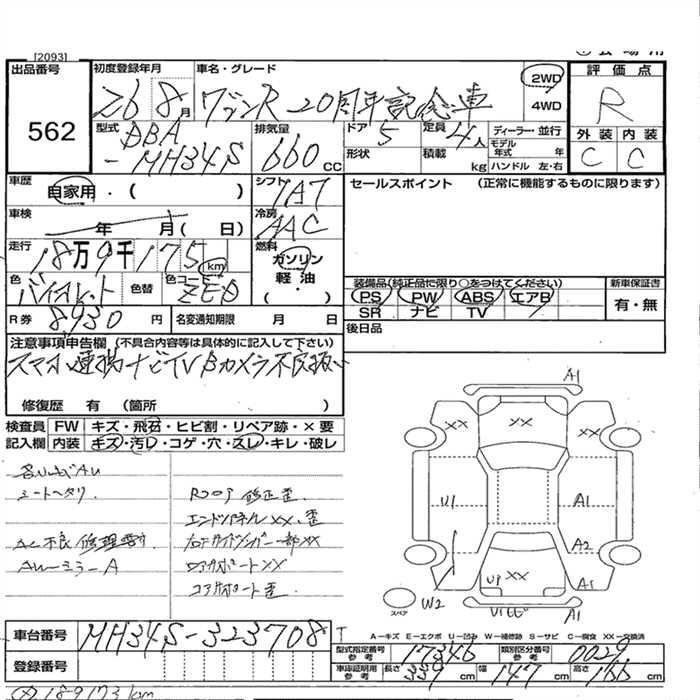 [2093]
出品番号
562
初度登録年月
26 8月
車名・グレード
ワゴンR 20周年記念車
2WD
4WD
評価点
R
外装 内装
C C
型式
DBA
-MH34S
排気量
660cc
ドア 5
形状
定員 4人
積載 kg
ディーラー・並行
モデル年式 年
ハンドル 左・右
車歴
自家用・( )
シフト
セールスポイント (正常に機能するものに限ります)
車検
年 月( 日)
冷房
AAC
走行
18万9千175km
燃料
ガソリン
軽油・
( )
色
バイオレット
色替
色コード
ZE0
装備品(純正品に限り○をつけてください)
PS PW ABS エアB
SR ナビ TV
新車保証書
有・無
R券 8930円
名変通知期限 月 日
後日品
注意事項申告欄 (不具合内容等は具体的に記入して下さい)
スマホ連携ナビTVBカメラ不良扱い
修復歴 有 (箇所 )
検査員記入欄
FW キズ・飛石・ヒビ割・リペア跡・×要
内装 キズ・汚レ・コゲ・穴・スレ・キレ・破レ
シートヘタリ
Rフロア 修正歪
エンドパネルXX、歪
AC不良 修理要す
ロアサポートXX
Aムーミラー A
コアサポート歪
A1
XX
XX
U1
A1
A2
UP XX
A1
W2
A1
スペア
A-キズ E-エクボ U-凹み W-補修跡 S-サビ C-腐食 XX-交換済
車台番号
MH34S-323708
登録番号
型式指定番号 参考 17346
類別区分番号 参考 0029
車庫証明用 参考 長さ 339 幅 147 高さ 166
189173km